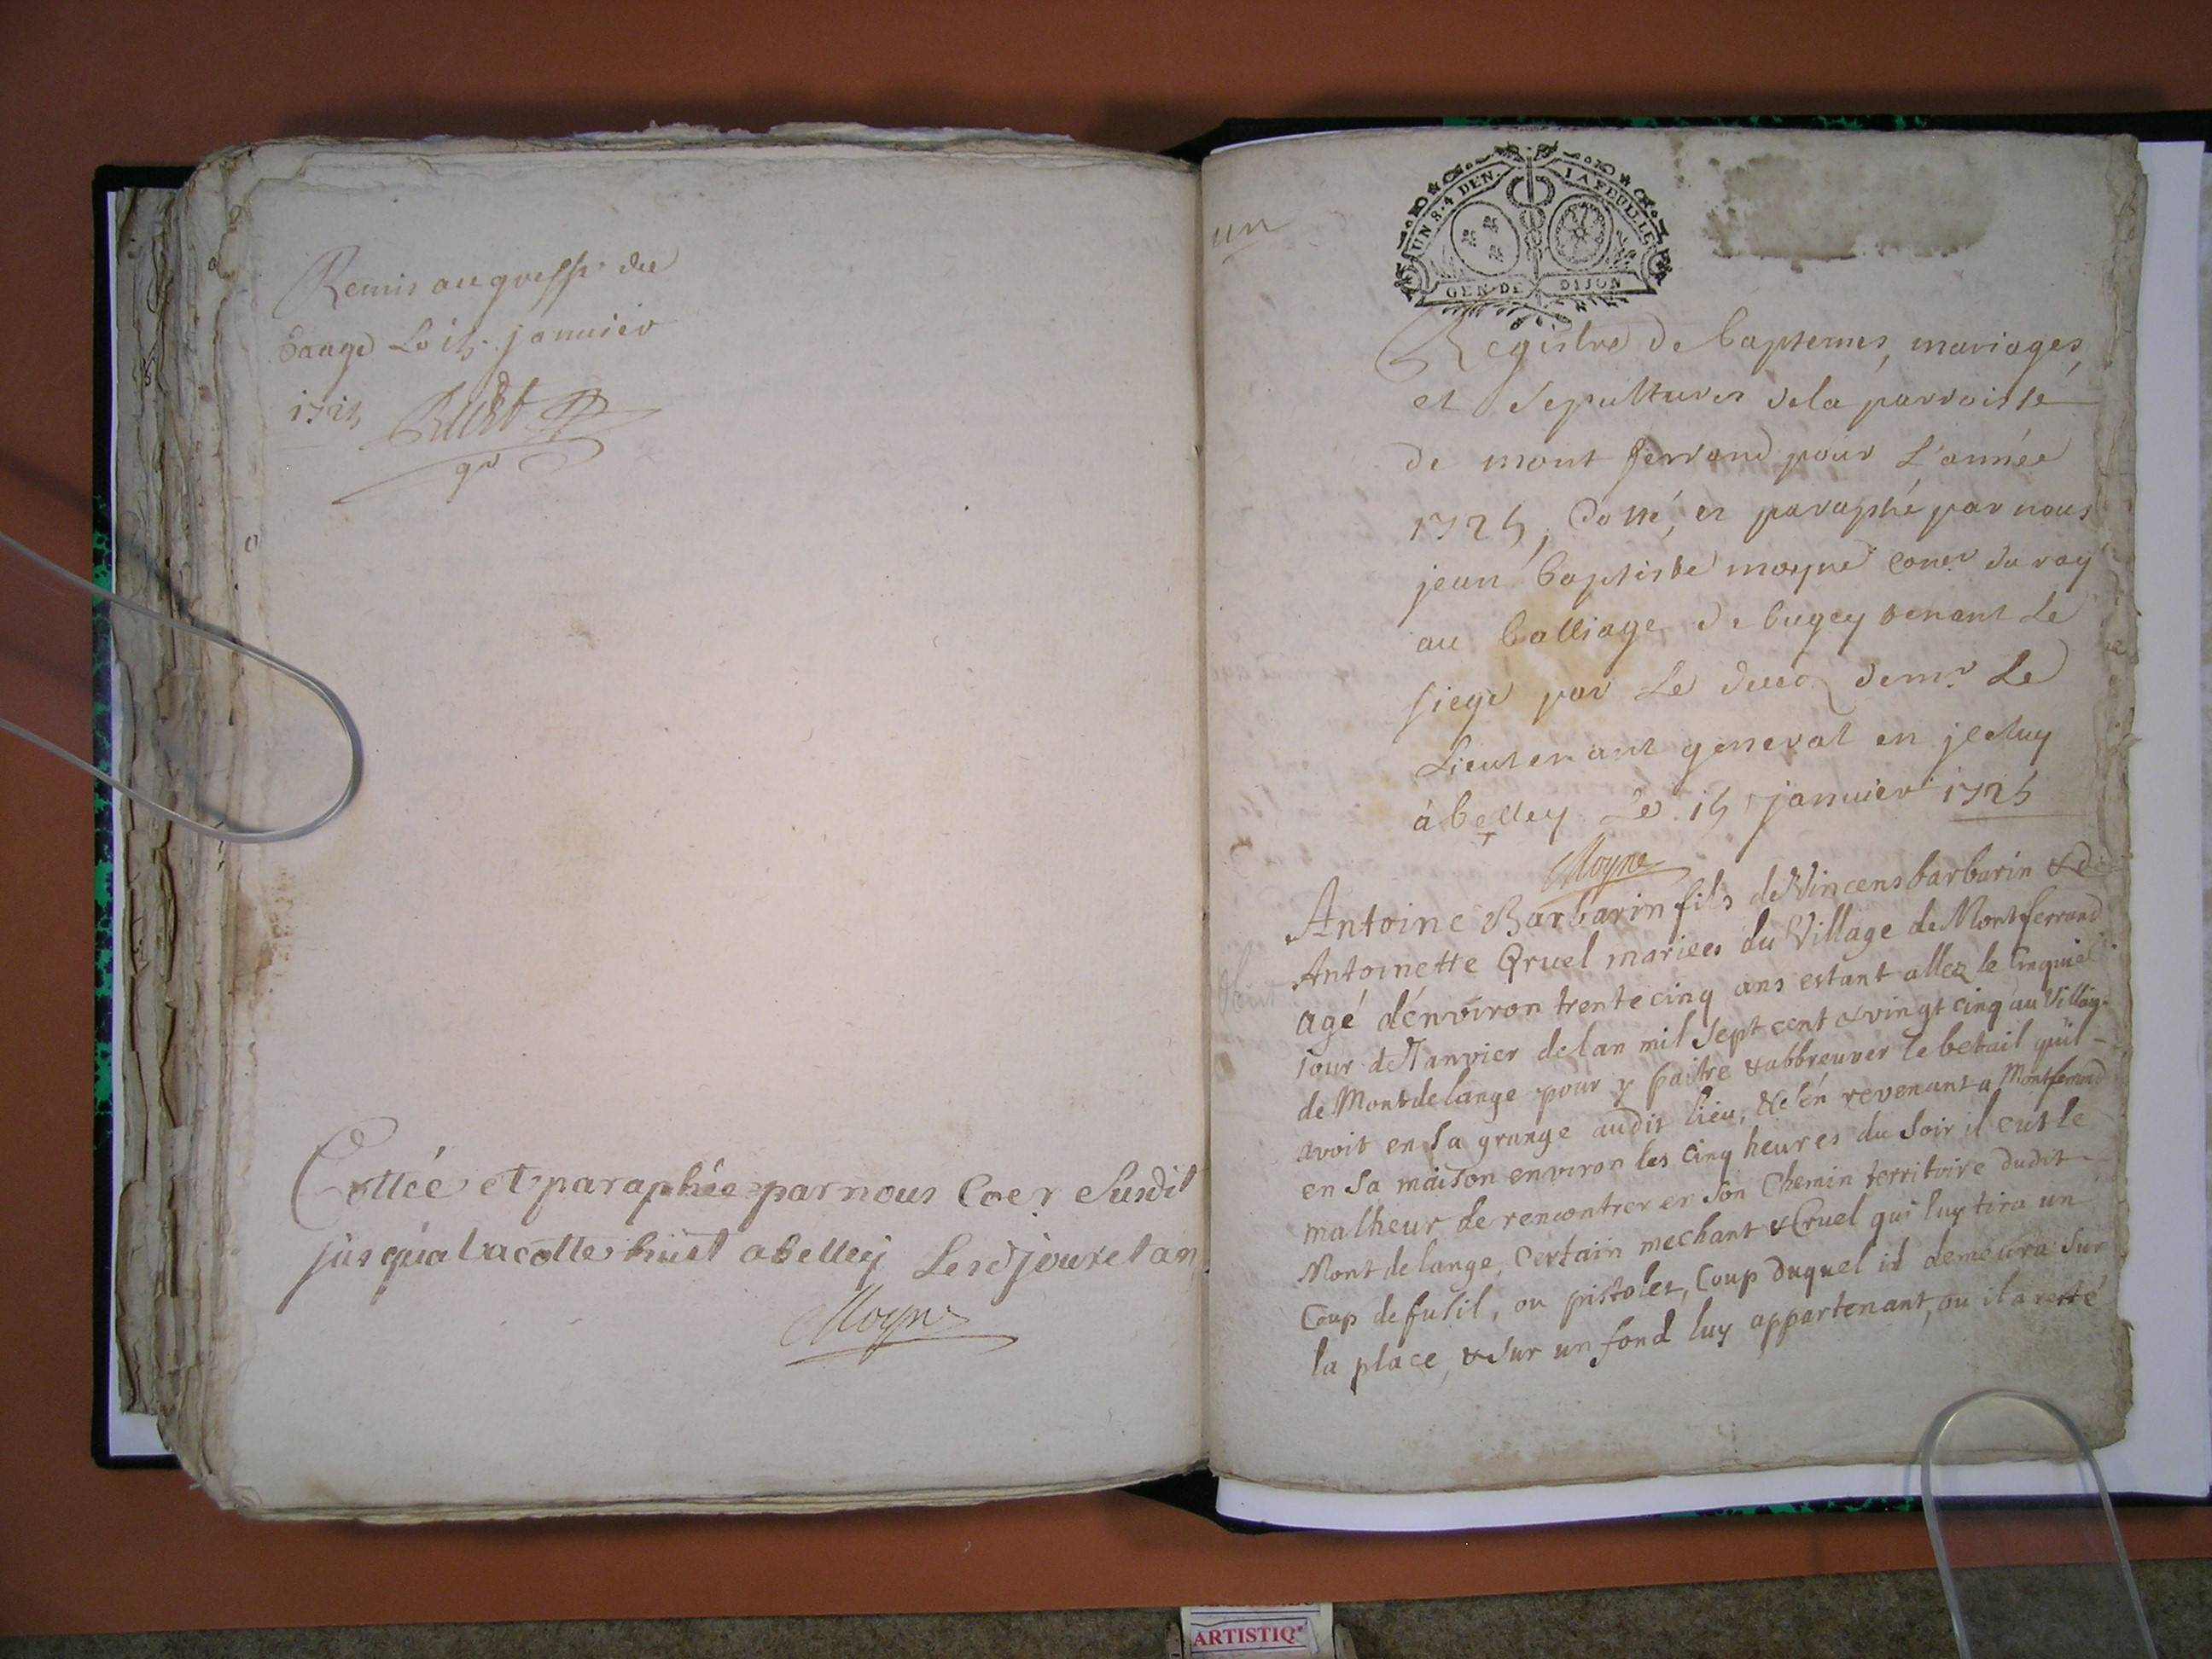 Remis au greffe du
1725
Cottée et paraphée par nous Coer Susdit
jusqua la cotte huit a Belley Lesd jour et an
Moyne
un
UN S. 4 DEN. LA FEUILLE
GEN. DE DIJON
Registre de baptemes, mariages,
et sepultures dela parroisse
de mont ferrand pour L'année
1725, Cotté, et paraphé par nous
jean baptiste moyne conr du roy
au balliage de bugey tenant Le
siege par Le deced de mr Le
Lieutenant general en jceluy
à belley Le 15 januier 1725
Moyne
Antoine Barbarin fils de Vincens barbarin & de
Antoinette Qruel mariees du Village de Montferrand
agé d'environ trente cinq ans estant allez le Cinquie
iour de Janvier de lan mil Sept cent & vingt cinq au Villag
de Montdelange pour y paitre & abbreuver le betail qu'il
avoit en Sa grange audit lieu, & s'en revenant a Montferrand
en Sa maison environ les Cinq heures du Soir il eut le
malheur de rencontrer en Son Chemin territoire dudit
Montdelange, Certain mechant & Cruel qui luy tira un
Coup de fusil, ou pistolet, Coup duquel il demeura Sur
la place, & Sur un fond luy appartenant, ou il a resté
ARTISTIQ